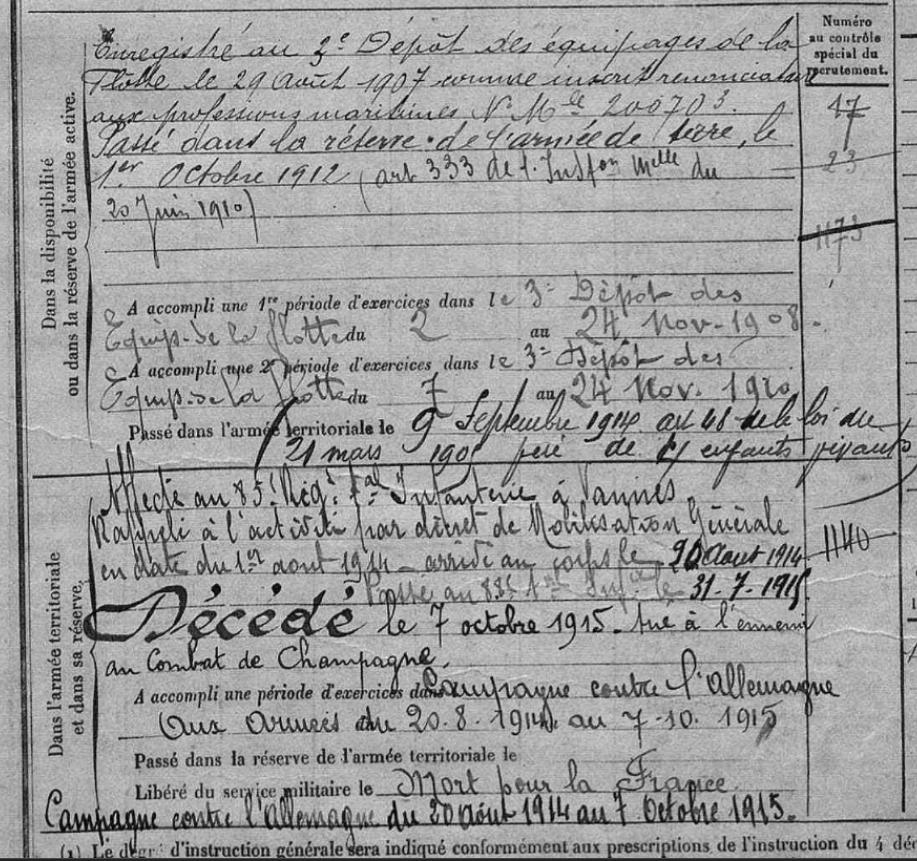 Numéro
au contrôle
spécial du
recrutement.
Dans la disponibilité
ou dans la réserve de l'armée active.
Enregistré au 3e Dépôt des équipages de la
Flotte le 29 Août 1907 comme inscrit renonciataire
aux professions maritimes No Mle 200703.
Passé dans la réserve de l'armée de terre, le
1er Octobre 1912 (art 333 de l'Instion Melle du
20 Juin 1910)
17
23
1173
A accompli une 1re période d'exercices dans le 3e Dépôt des
Equip. de la flotte du 2 au 24 Nov. 1908.
A accompli une 2e période d'exercices dans le 3e Dépôt des
Equip. de la flotte du 7 au 24 Nov. 1910
Passé dans l'armée territoriale le 9 Septembre 1914 art 48 de la loi du
21 mars 1905 père de enfants vivants
Dans l'armée territoriale
et dans sa réserve.
Affecté au 85e Régt tal Infanterie à Vannes
Rappelé à l'activité par décret de Mobilisation Générale
en date du 1er aout 1914 - arrivé au corps le 20 Aout 1914
1140
Passé au le 31-7-1915
Décédé le 7 octobre 1915. tué à l'ennemi
au Combat de Champagne.
A accompli une période d'exercices dans Campagne contre l'Allemagne
Aux Armées du 20-8-1914 au 7-10-1915
Passé dans la réserve de l'armée territoriale le
Libéré du service militaire le Mort pour la France
Campagne contre l'Allemagne du 20 Août 1914 au 7 Octobre 1915.
(1) Le degré d'instruction générale sera indiqué conformément aux prescriptions de l'instruction du 4 déc